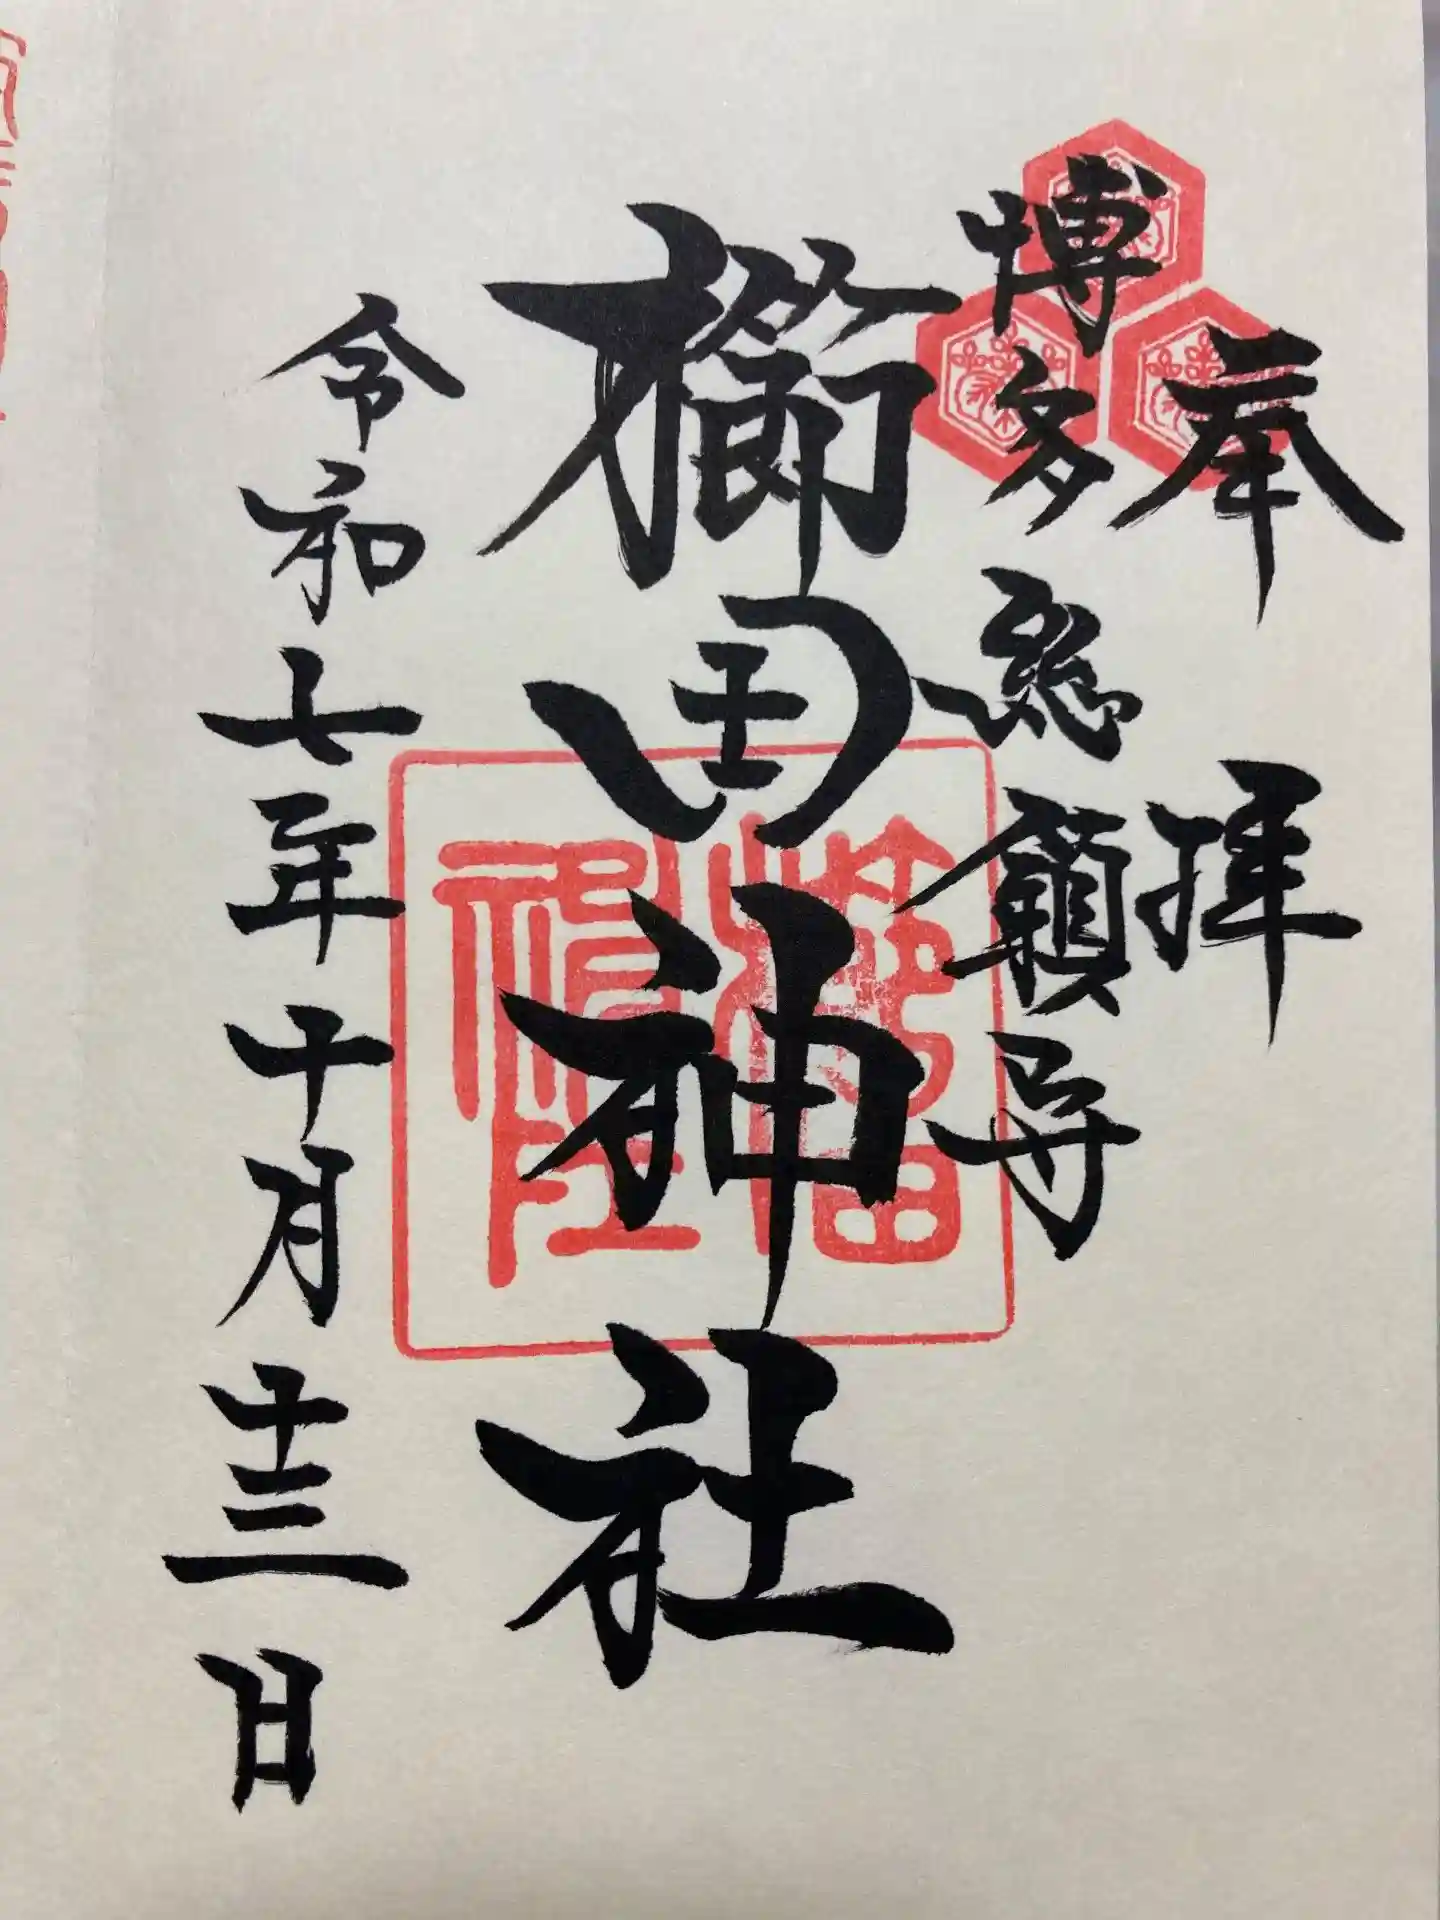 奉拝
博多総鎮守
櫛田神社
令和七年十月十三日
櫛田神社